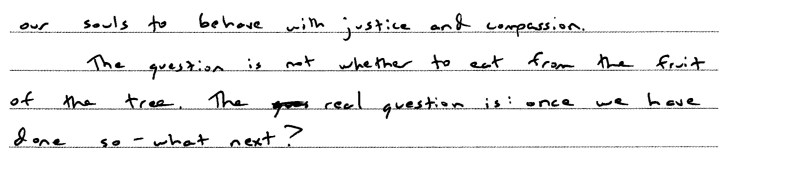 our souls to behave with justice and compassion.
The question is not whether to eat from the fruit
of the tree. The real question is: once we have
done so - what next?